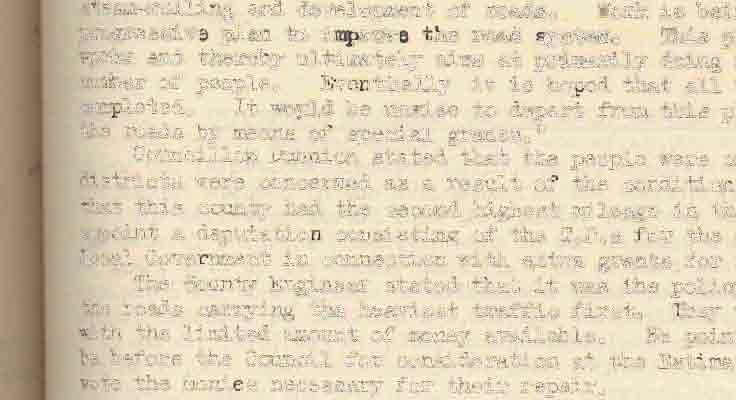 and development of roads. Work is
progressive plan to improve the road system. This
and thereby ultimately aims at primarily doing
number of people. Eventually it is hoped that all
It would be unwise to depart from this
the roads by means of special grants."
Councillor stated that the people were
districts were concerned as a result of the
that this county had the second highest mileage in
appoint a deputation consisting of the T.D.s for the
Local Government in connection with extra grants for
The County Engineer stated that it was the
the roads carrying the heaviest traffic first. They
with the limited amount of money available. He
be before the Council for consideration at the
vote the monies necessary for their repair.